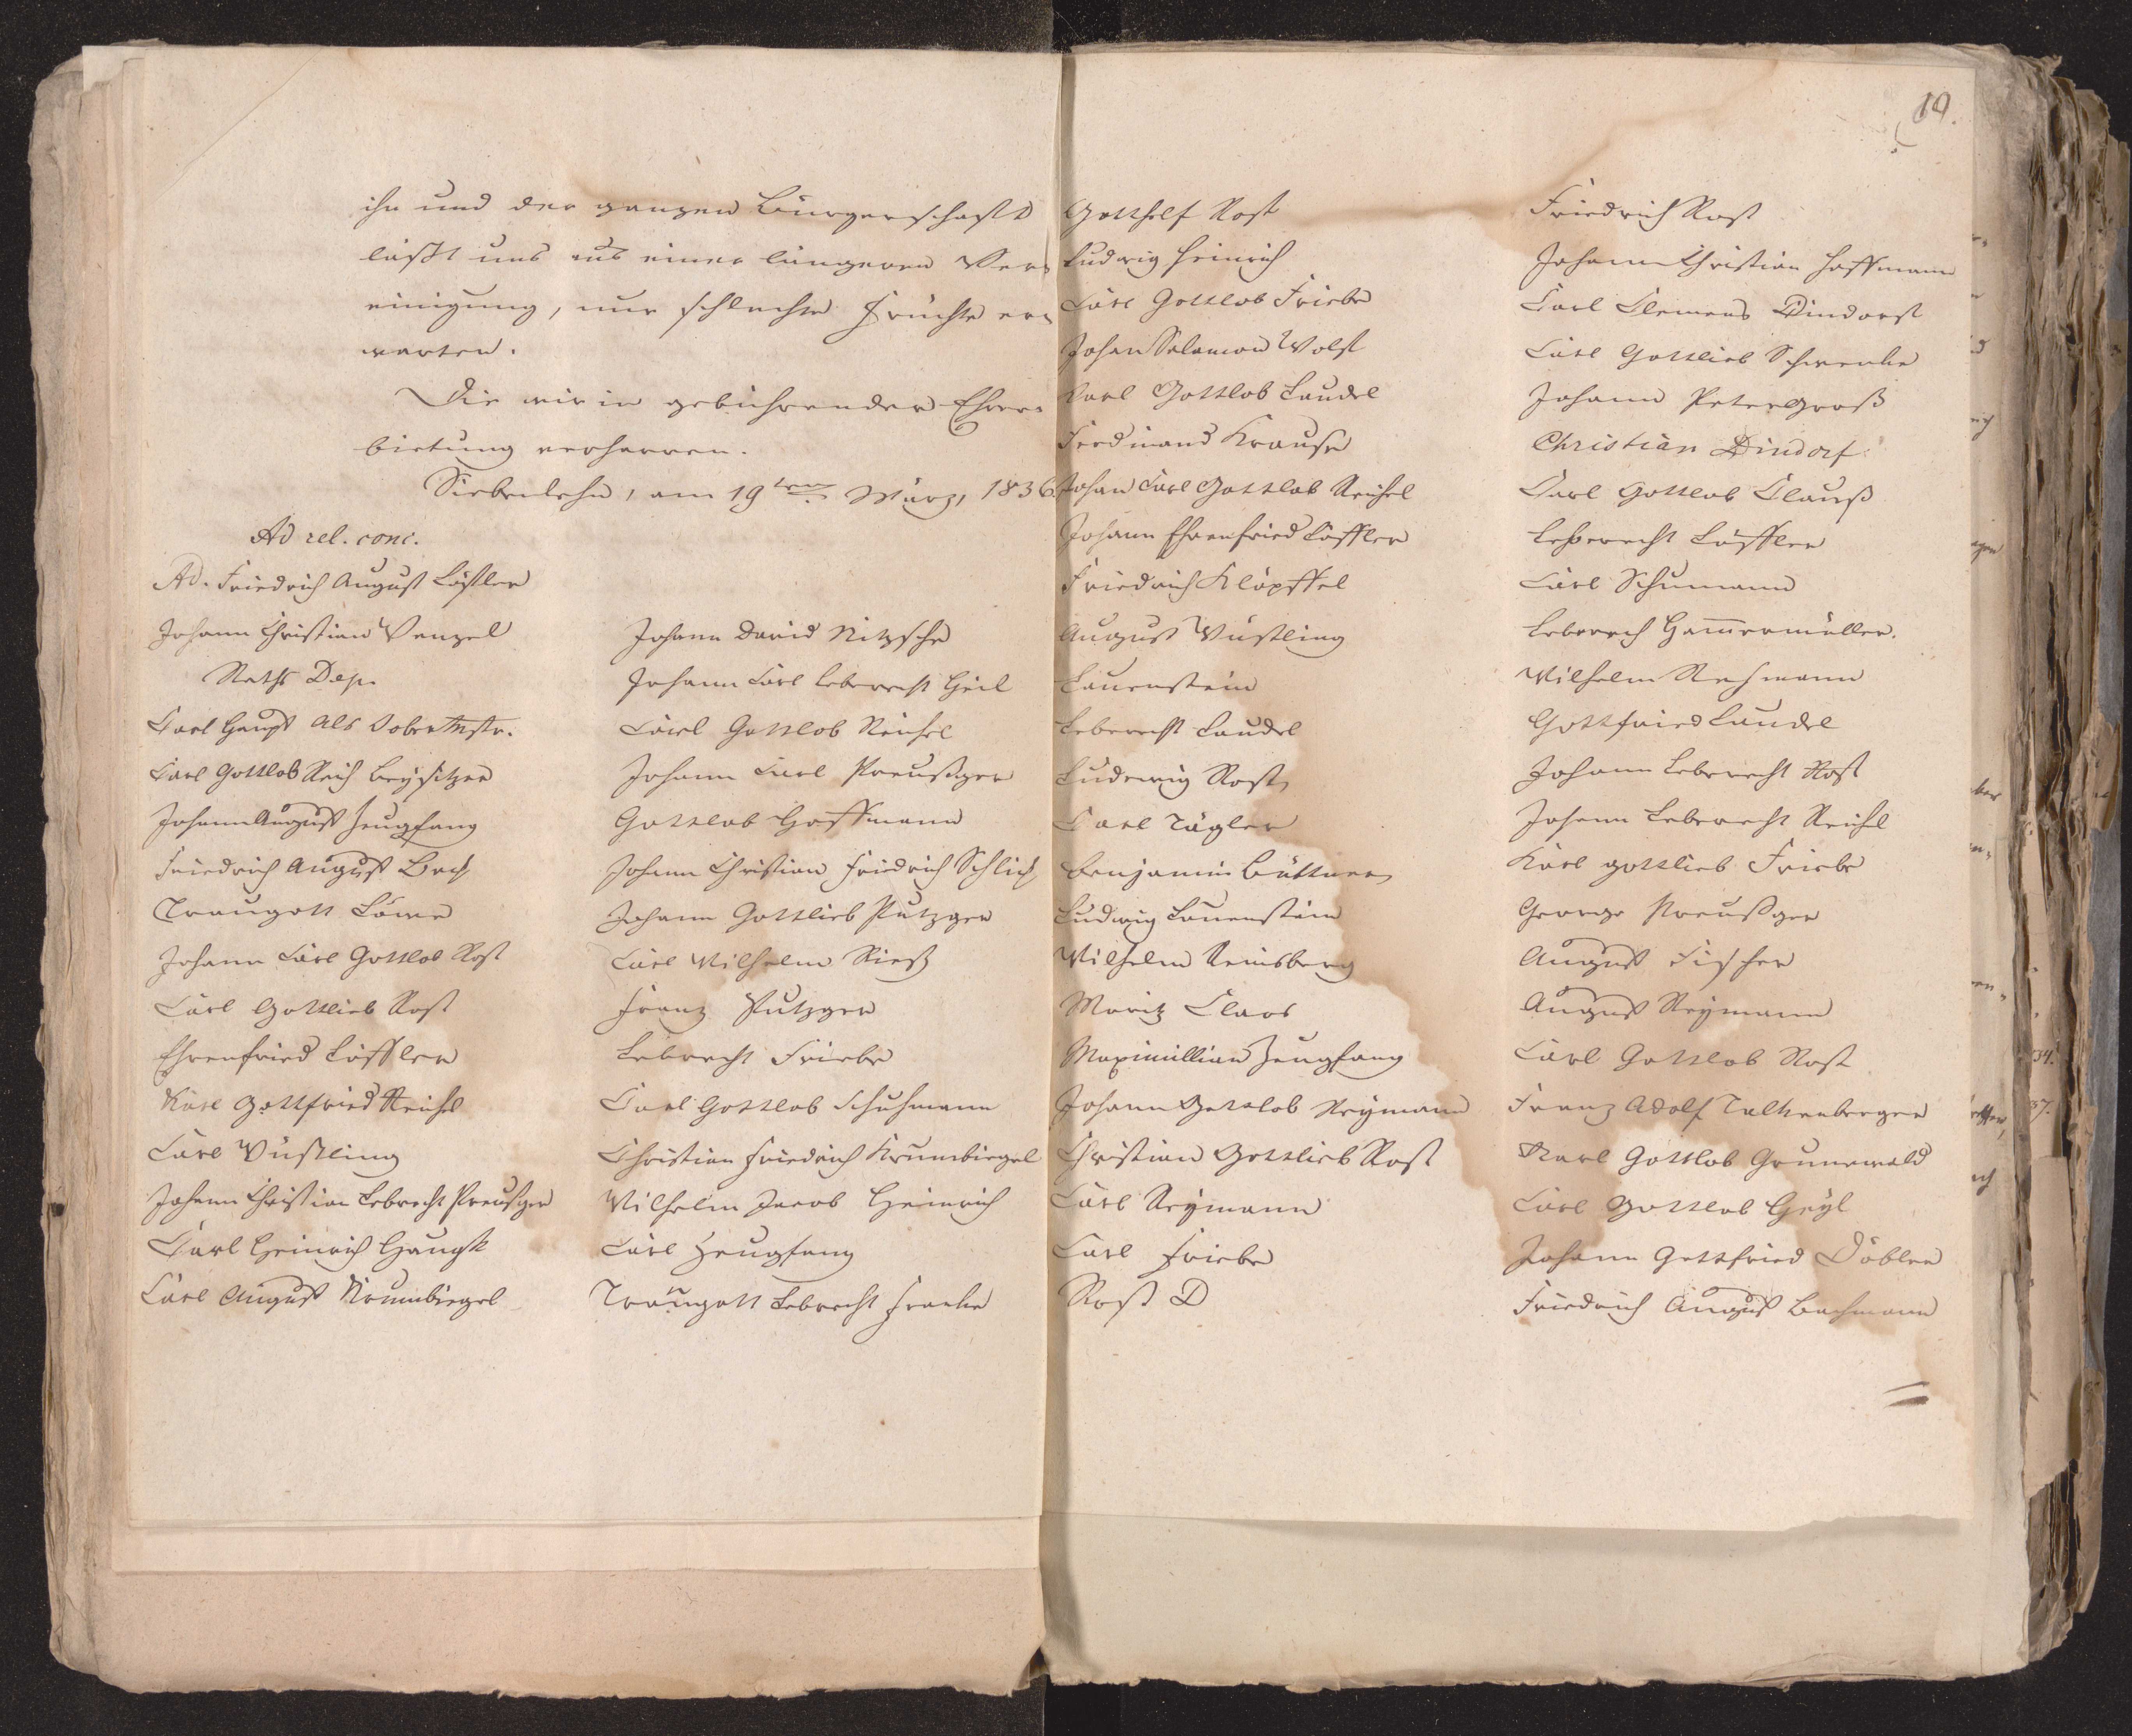 ihn und der ganzen Bürgerschaft
läßt uns aus einer längeren Ver¬
einigung, nur schlechte Früchte er¬
warten.
Die wir in gebührender Ehrer¬
bietung verharren.
Siebenlehn, am 19ten März, 1836.
Ad rel. conc.
Ad. Friedrich August Löffler
Johann Christian Wenzel
Raths Dep.
Carl Haupt als Oobermstr.
Carl Gottlob Reich Beysitzer
Johann August Zeugfang
Friedrich August Bach
Traugott Löwe
Johann Carl Gottlob Rost
Carl Gottlieb Rost
Ehrenfried Löffler
Karl Gottfried Reichel
Carl Wüstling
Johann Christian Lebrecht Preußger
Carl Heinrich Haugk
Carl August Krumbiegel
Johann David Nitzsche
Johann Carl Leberecht Heil
Carl Gottlob Reichel
Johann Carl Preußger
Gottlob Hoffmann
Johann Christian Friedrich Schlich
Johann Gottlieb Putzger
Carl Wilhelm Rieß
Franz Putzger
Lebrecht Friebe
Carl Gottlob Schuhmann
Christian Friedrich Krumbiegel
Wilhelm Jacob Heinrich
Carl Zeugfang
Traugott Lebrecht Franke
19.
Gotthelf Rost
Ludwig Heinrich
Carl Gottlob Friebe
Johan Salamon Wolf
Carl Gottlob Laudel
Ferdinand Krause
Johan Carl Gottlob Reichel
Johann Ehrenfried Löffler
Friedrich Klöpffel
August Wüstling
Lauenstein
Leberecht Laudel
Ludewig Rost
Carl Tägler
Benjamin Büttner
Ludwig Lauenstein
Wilhelm Reinsberg
Moritz Claos
Maximillian Zeugfang
Johann Gottlob Reymann
Christian Gottlieb Rost
Carl Reymann
Carl Friebe
Rost D
Friedrich Rost
Johann Christian Hoffmann
Carl Clemens Dindorf
Carl Gottlieb Schwenke
Johann Peter Groß
Christian Dindorf
Carl Gottlob Clauß
Leberecht Löffler
Carl Schumann
Leberech Ham̅ermüller.
Wilhelm Rehmann
Gottfried Laudel
Johann Leberecht Rost
Johann Leberecht Reichl
Karl Gottlieb Friebe
George Preußger
August Fischer
August Reymann
Carl Gottlob Rost
Franz Adolf Talkenberger
Karl Gottlob Grunewald
Carl Gottlob Heyl
Johann Gottfried Döbler
Friedrich August Bachmann